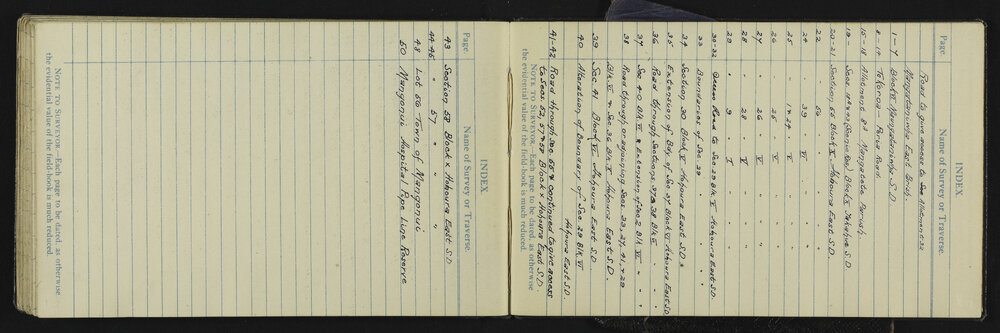 INDEX.
Page. Name of Survey or Traverse.
Road to give access to Sec Allotment 32
Mangatawiri East Parish.
1-7 Block II Mangatawiri S.D.
8-14 Totoroa - Parua Road.
15-18 Allotment 83 Mangakete Parish.
19- Block IX S.D.
20-21 Section 55 Block X Hohoura East S.D.
22 " 56 " " " "
24 " 39 " VI " "
25 " 17 & 24 " V " "
26 " 25 " V " "
27 " 26 " V " "
28 " 28 " V " "
29 " 9 " V " "
30-32 Access Road to Sec 29 Blk V Hohoura East S.D.
33 Boundaries of Sec. 29 " "
34 Section 30 Block V Hohoura East S.D.
35 Extension of Bdy of Sec 37 Block VI Hohoura East S.D.
36 Road through Sections 37 & 38 Blk VI " "
37 Sec 40 Blk VI & Extension of Sec 2 Blk VI " "
38 Road through or adjoining Secs. 23, 27, 41, & 29
Blk VI & Sec 36 Blk V Hohoura East S.D.
39 Sec. 41 Block VI Hohoura East S.D.
40 Alteration of Boundary of Sec. 29 Blk VI
Hohoura East S.D.
41-42 Road through Sec. 55 & continued to give access
to Secs. 52, 57 & 58 Block X Hohoura East S.D.
NOTE TO SURVEYOR.—Each page to be dated, as otherwise
the evidential value of the field-book is much reduced.
INDEX.
Page. Name of Survey or Traverse.
43 Section 58 Block X Hohoura East S.D.
44-46 " 57 " " "
48 Lot 56 Town of Mangonui
50 Mangonui Hospital Pipe Line Reserve
NOTE TO SURVEYOR.—Each page to be dated, as otherwise
the evidential value of the field-book is much reduced.